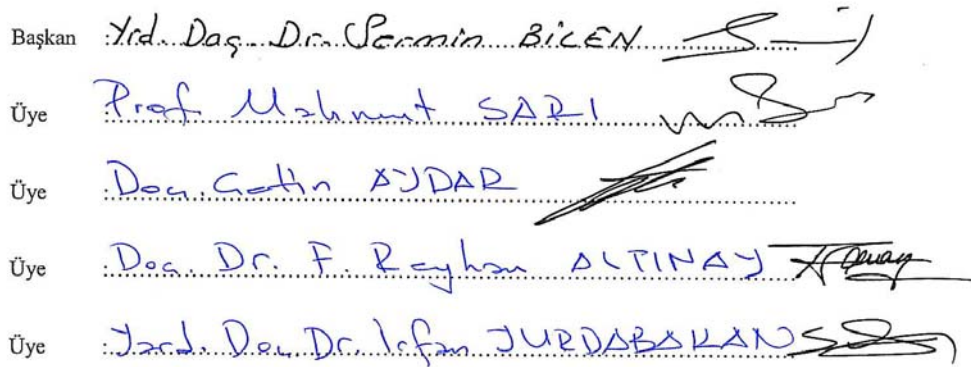 Başkan : Yrd. Doç. Dr. Şermin BİLEN
Üye Prof Mahmut SARI
Üye : Doç. Çetin AYDAR
Üye : Doç. Dr. F. Reyhan ALTINAY
Üye : Yard. Doç. Dr. İrfan YURDABAKAN